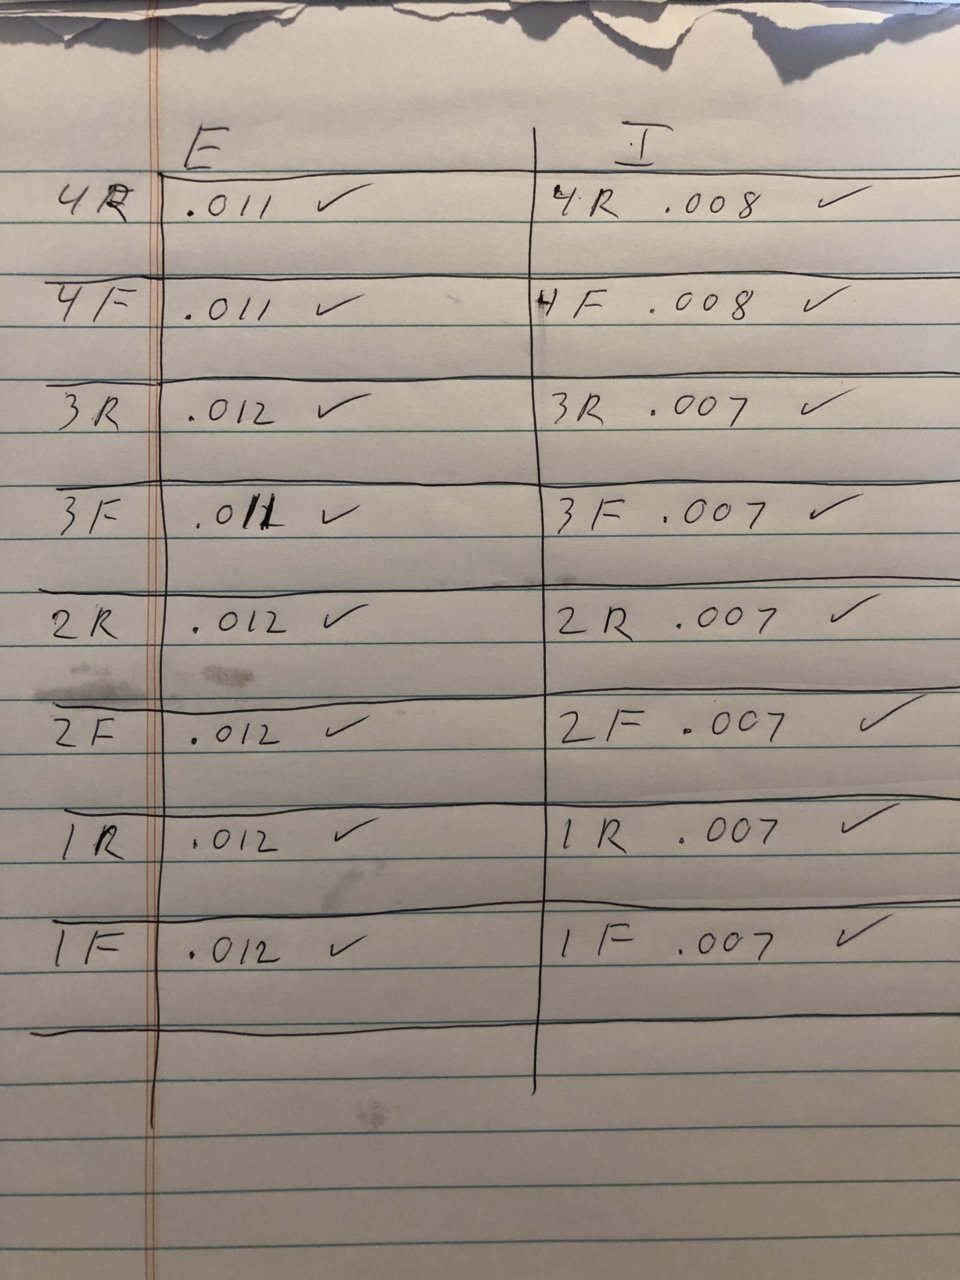 E I
4R .011 ✓ 4R .008 ✓
4F .011 ✓ 4F .008 ✓
3R .012 ✓ 3R .007 ✓
3F .011 ✓ 3F .007 ✓
2R .012 ✓ 2R .007 ✓
2F .012 ✓ 2F .007 ✓
1R .012 ✓ 1R .007 ✓
1F .012 ✓ 1F .007 ✓